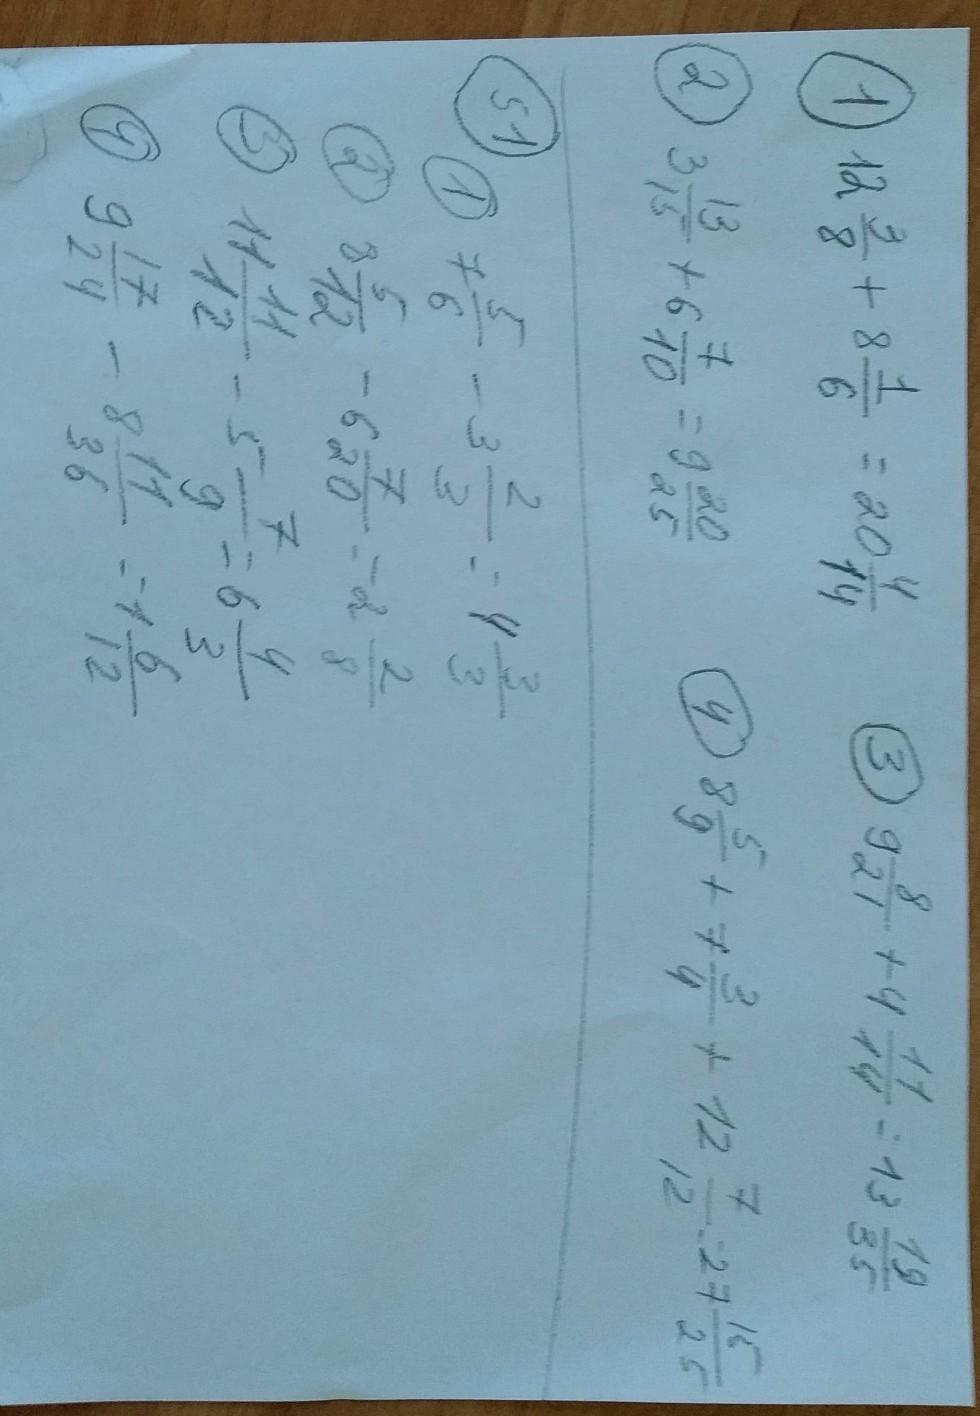 ① 12 3/8 + 8 1/6 = 20 4/14 ③ 9 8/21 + 4 11/14 = 13 19/35
② 3 13/15 + 6 7/10 = 9 20/25 ④ 8 5/9 + 7 3/4 + 12 7/12 = 27 15/25
51
① 7 5/6 - 3 2/3 = 4 3/3
② 8 5/12 - 6 7/20 = 2 2/8
③ 11 11/12 - 5 7/9 = 6 4/3
④ 9 17/24 - 8 11/36 = 1 6/12